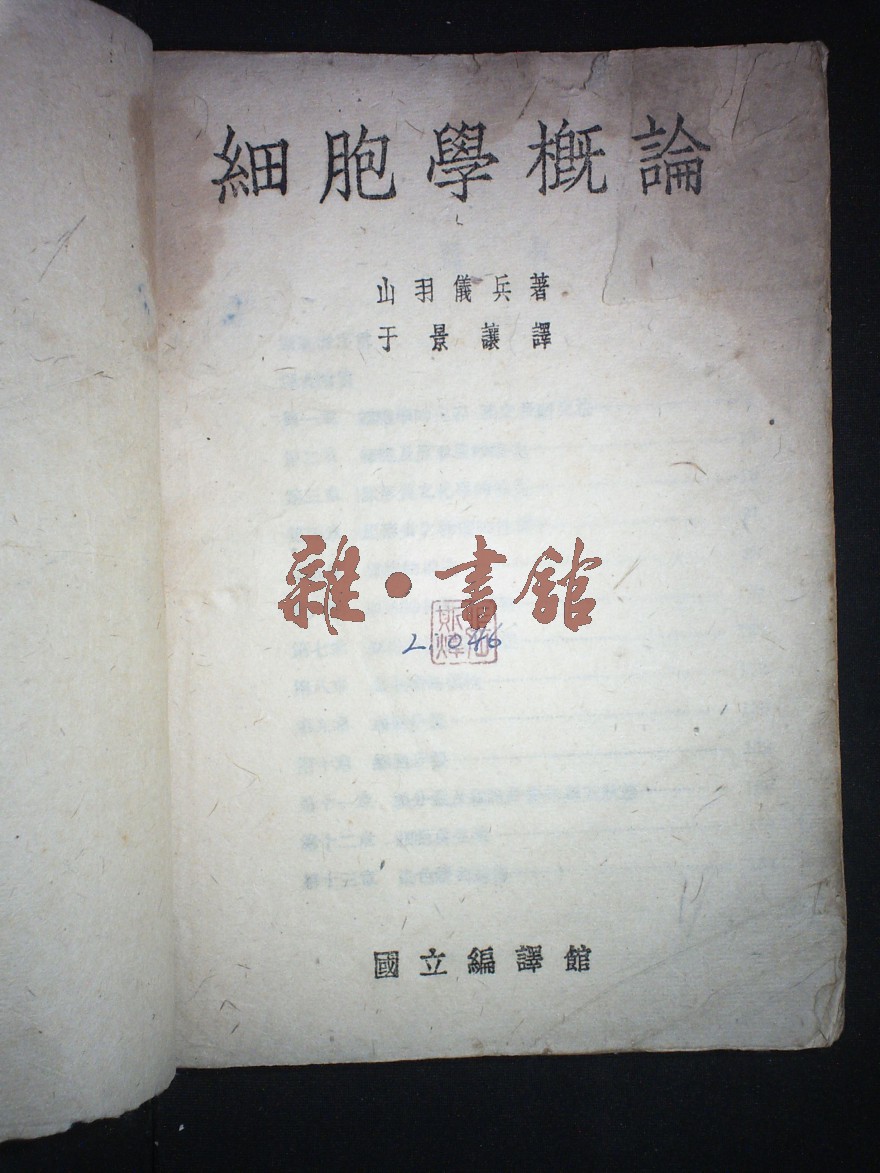 細胞學概論
山羽儀兵著
于景讓譯
雜·書館
2.046
國立編譯館